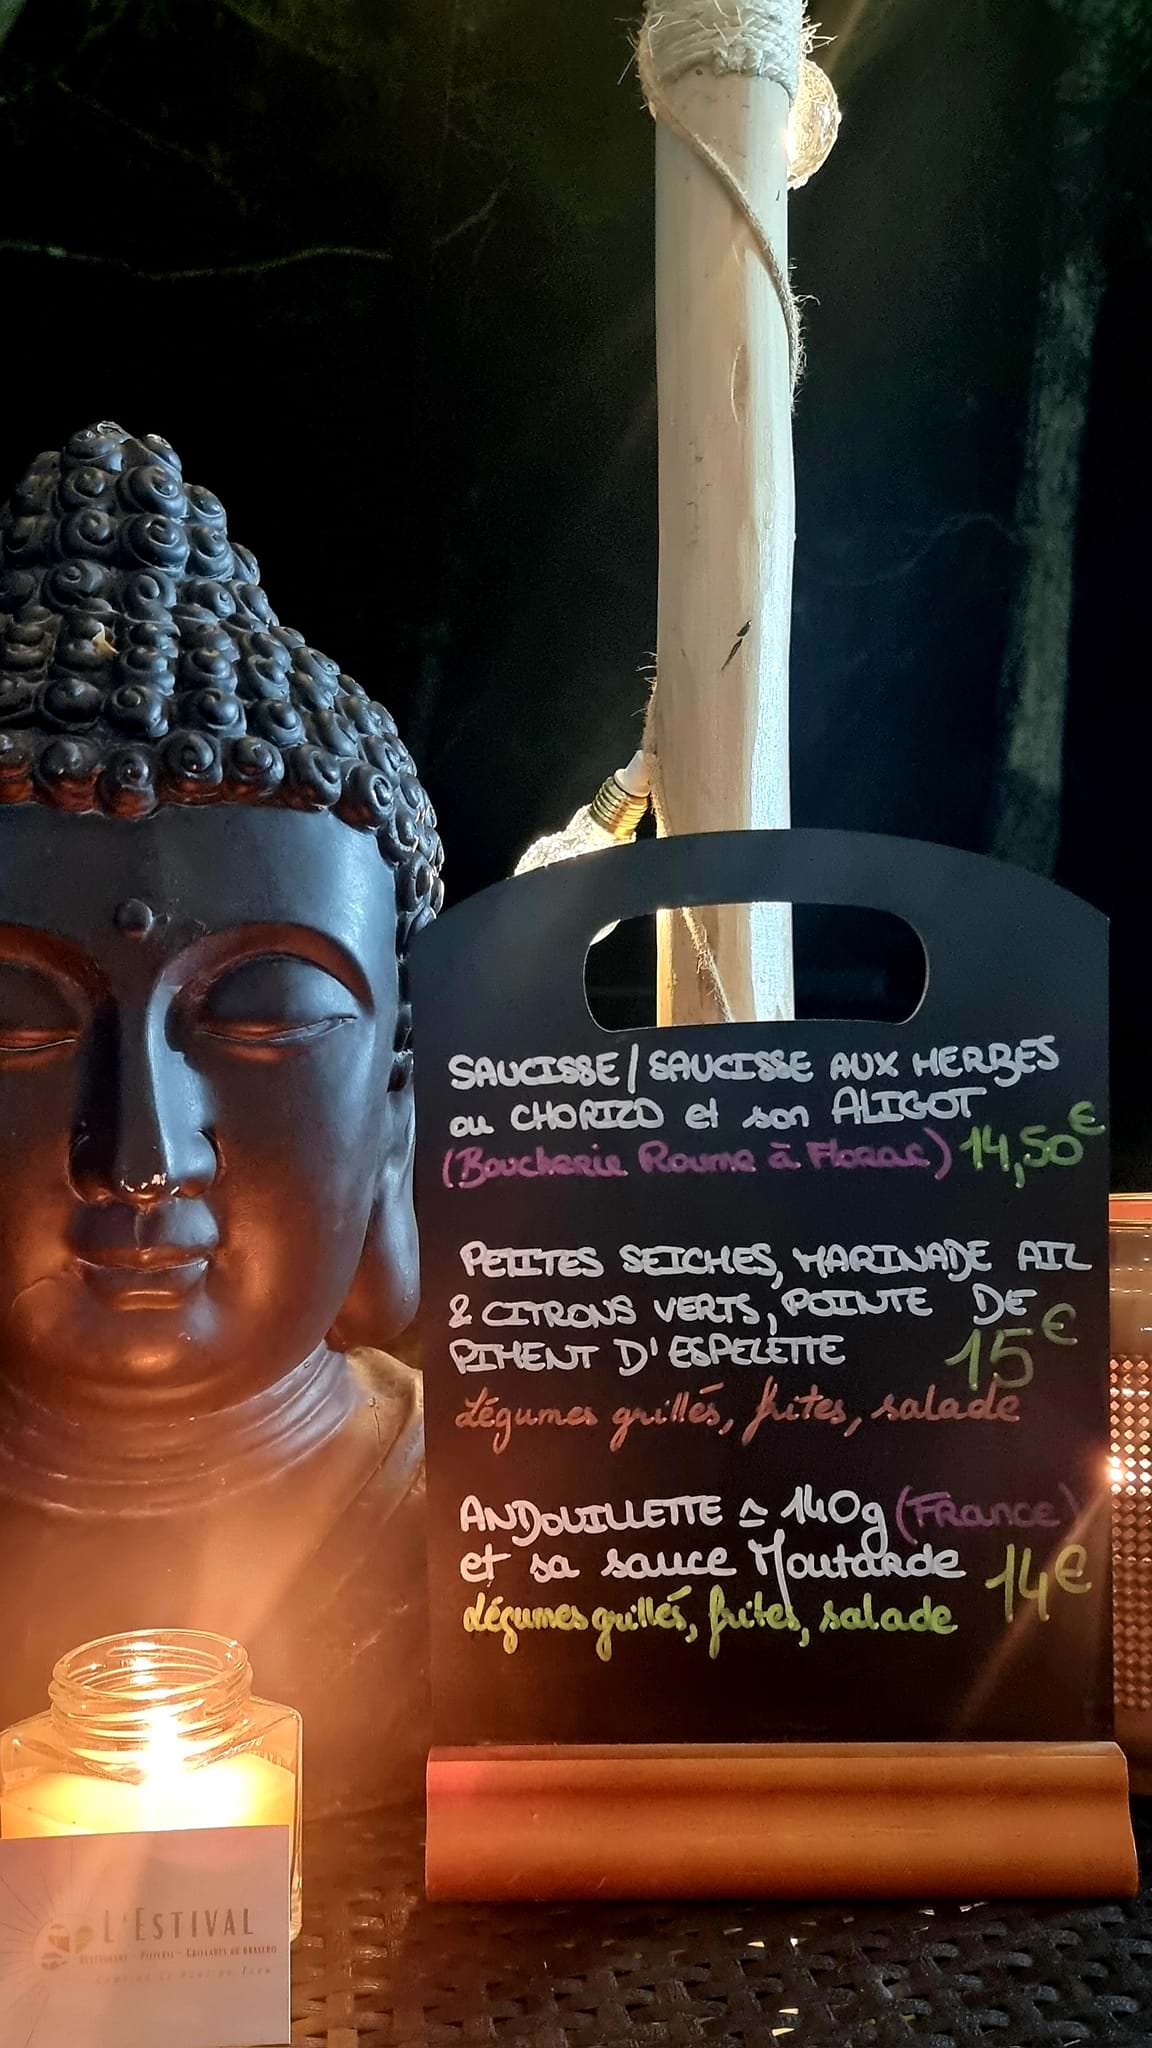 SAUCISSE / SAUCISSE AUX HERBES
ou CHORIZO et son ALIGOT
(Boucherie Roume à Florac) 14,50€
PETITES SEICHES, MARINADE AIL
& CITRONS VERTS, POINTE DE
PIMENT D'ESPELETTE 15€
Légumes grillés, frites, salade
ANDOUILLETTE ≃ 140g (France)
et sa sauce Moutarde 14€
Légumes grillés, frites, salade
L'ESTIVAL
RESTAURANT - PIZZERIA - GRILLADES AU BRASERO
CAMPING LE PONT DU TARN